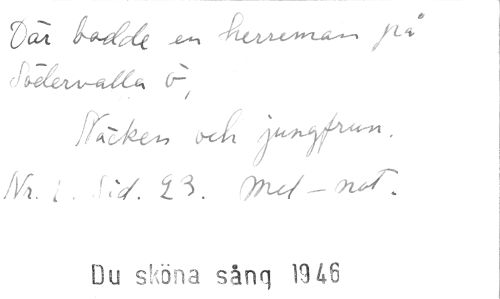 Där bodde en herreman på
Södervalla ö,
Näcken och jungfrun.
Nr. 1. Sid. 23. Mel-not.
Du sköna sång 1946